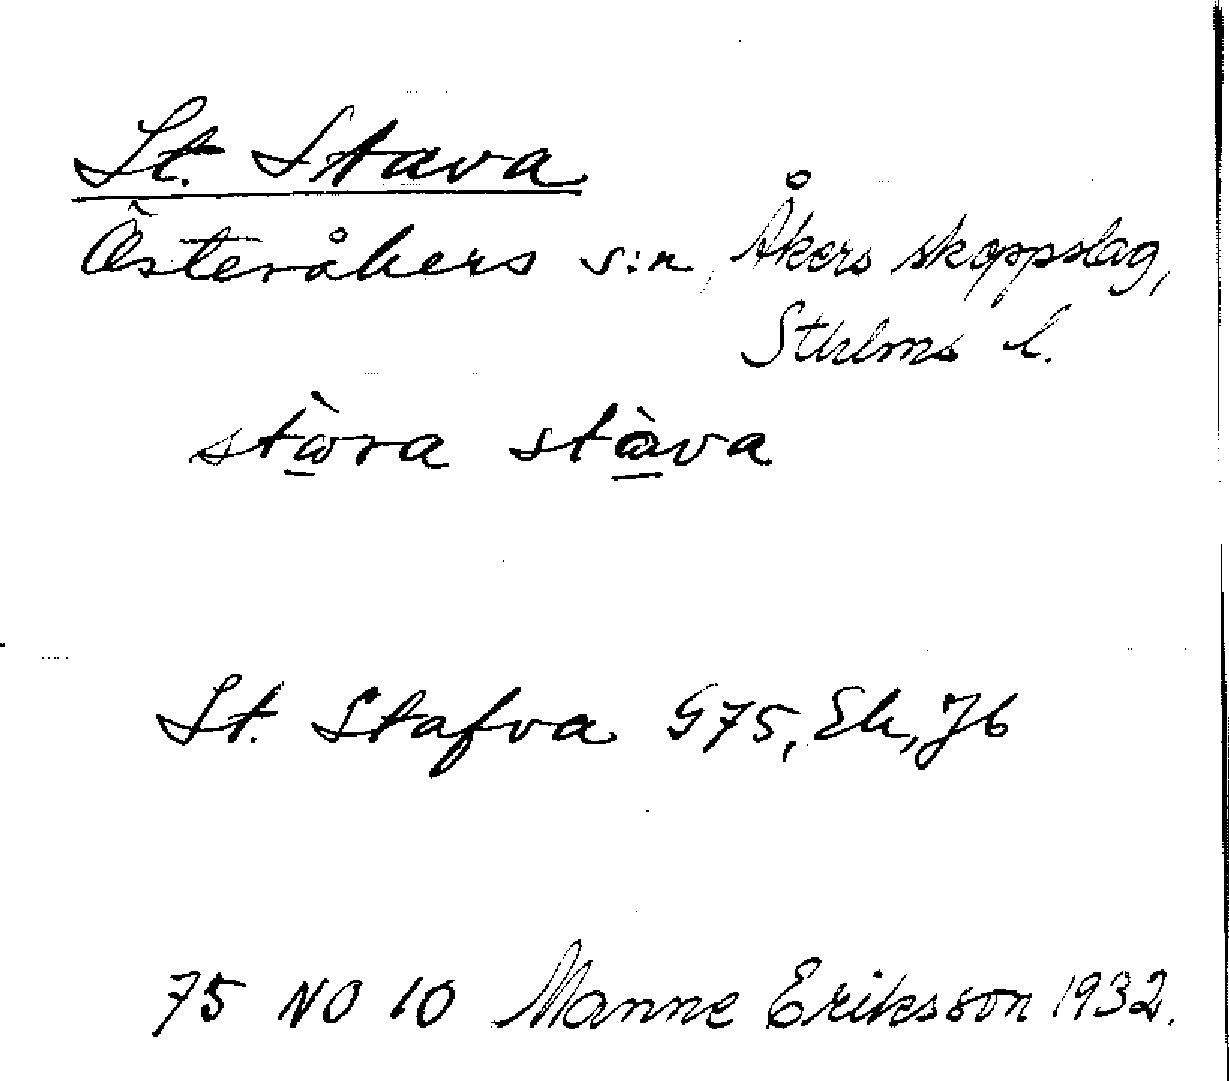 St. Stava
Österåkers s:n, Åkers skeppslag,
Sthlms l.
stòra stàva
St. Stafva G75, Ek, Jb
75 NO 10 Manne Eriksson 1932.